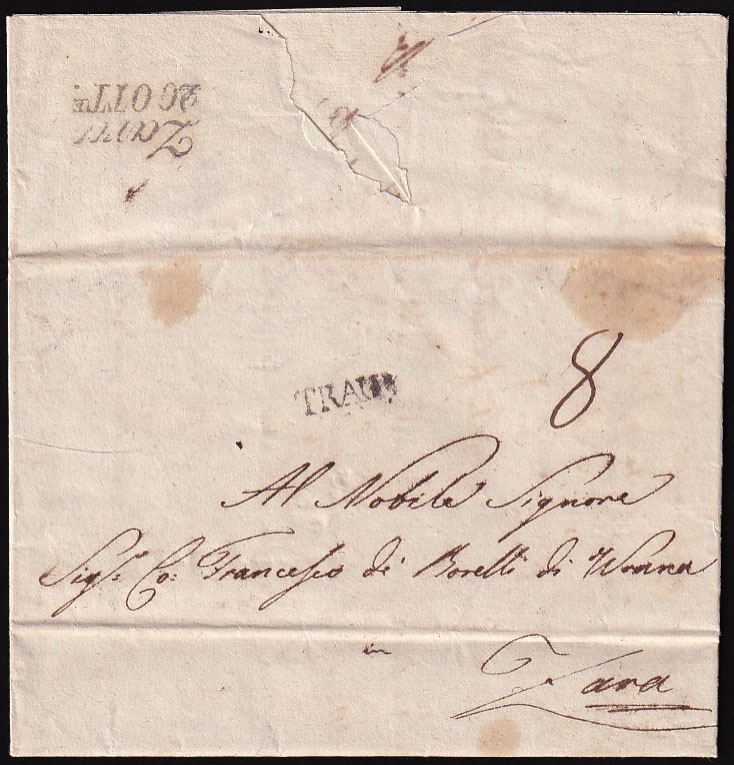 Zara
26 OTTE
TRAU
8
Al Nobile Signore
Sigr. Co: Francesco de Borelli di Wrana
in
Zara